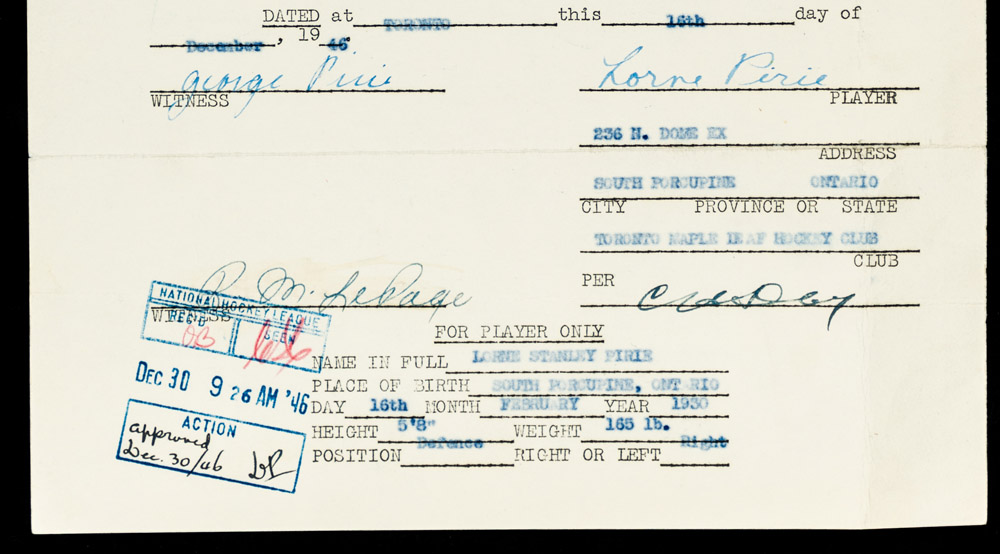 DATED at TORONTO this 16th day of
December, 19 46
george Pirie Lorne Pirie
WITNESS PLAYER
236 N. DOME EX
ADDRESS
SOUTH PORCUPINE ONTARIO
CITY PROVINCE OR STATE
TORONTO MAPLE LEAF HOCKEY CLUB
CLUB
PER
R. M. LePage
WITNESS
NATIONAL HOCKEY LEAGUE
REC'D SEEN
FOR PLAYER ONLY
NAME IN FULL LORNE STANLEY PIRIE
PLACE OF BIRTH SOUTH PORCUPINE, ONT RIO
DEC 30 9 26 AM '46
DAY 16th MONTH FEBRUARY YEAR 1930
HEIGHT 5'8" WEIGHT 165 lb.
POSITION Defence RIGHT OR LEFT Right
ACTION
approved
Dec. 30/46